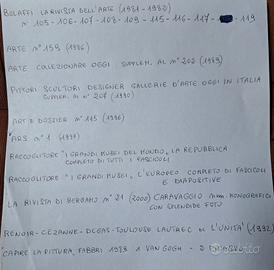 BOLAFFI LA RIVISTA DELL'ARTE (1981-1982)
n° 105-106-107-108-109-115-116-117- -119
ARTE n° 159 (1986)
ARTE COLLEZIONARE OGGI SUPPLEM. AL n° 202 (1989)
PITTORI SCULTORI DESIGNER GALLERIE D'ARTE OGGI IN ITALIA
SUPPLEM. AL n° 207 (1990)
ART E DOSSIER n° 115 (1996)
"ARS" n° 1 (1997)
RACCOGLITORE "I GRANDI MUSEI DEL MONDO, LA REPUBBLICA
COMPLETO DI TUTTI I FASCICOLI
RACCOGLITORE "I GRANDI MUSEI", L'EUROPEO COMPLETO DI FASCICOLI
E DIAPOSITIVE
LA RIVISTA DI BERGAMO n° 21 (2000) CARAVAGGIO MONOGRAFICO
CON SPLENDIDE FOTO
RENOIR-CEZANNE-DEGAS-TOULOUSE LAUTREC DE L'UNITÀ (1992)
CAPIRE LA PITTURA, FABBRI 1989 1 VAN GOGH - 2